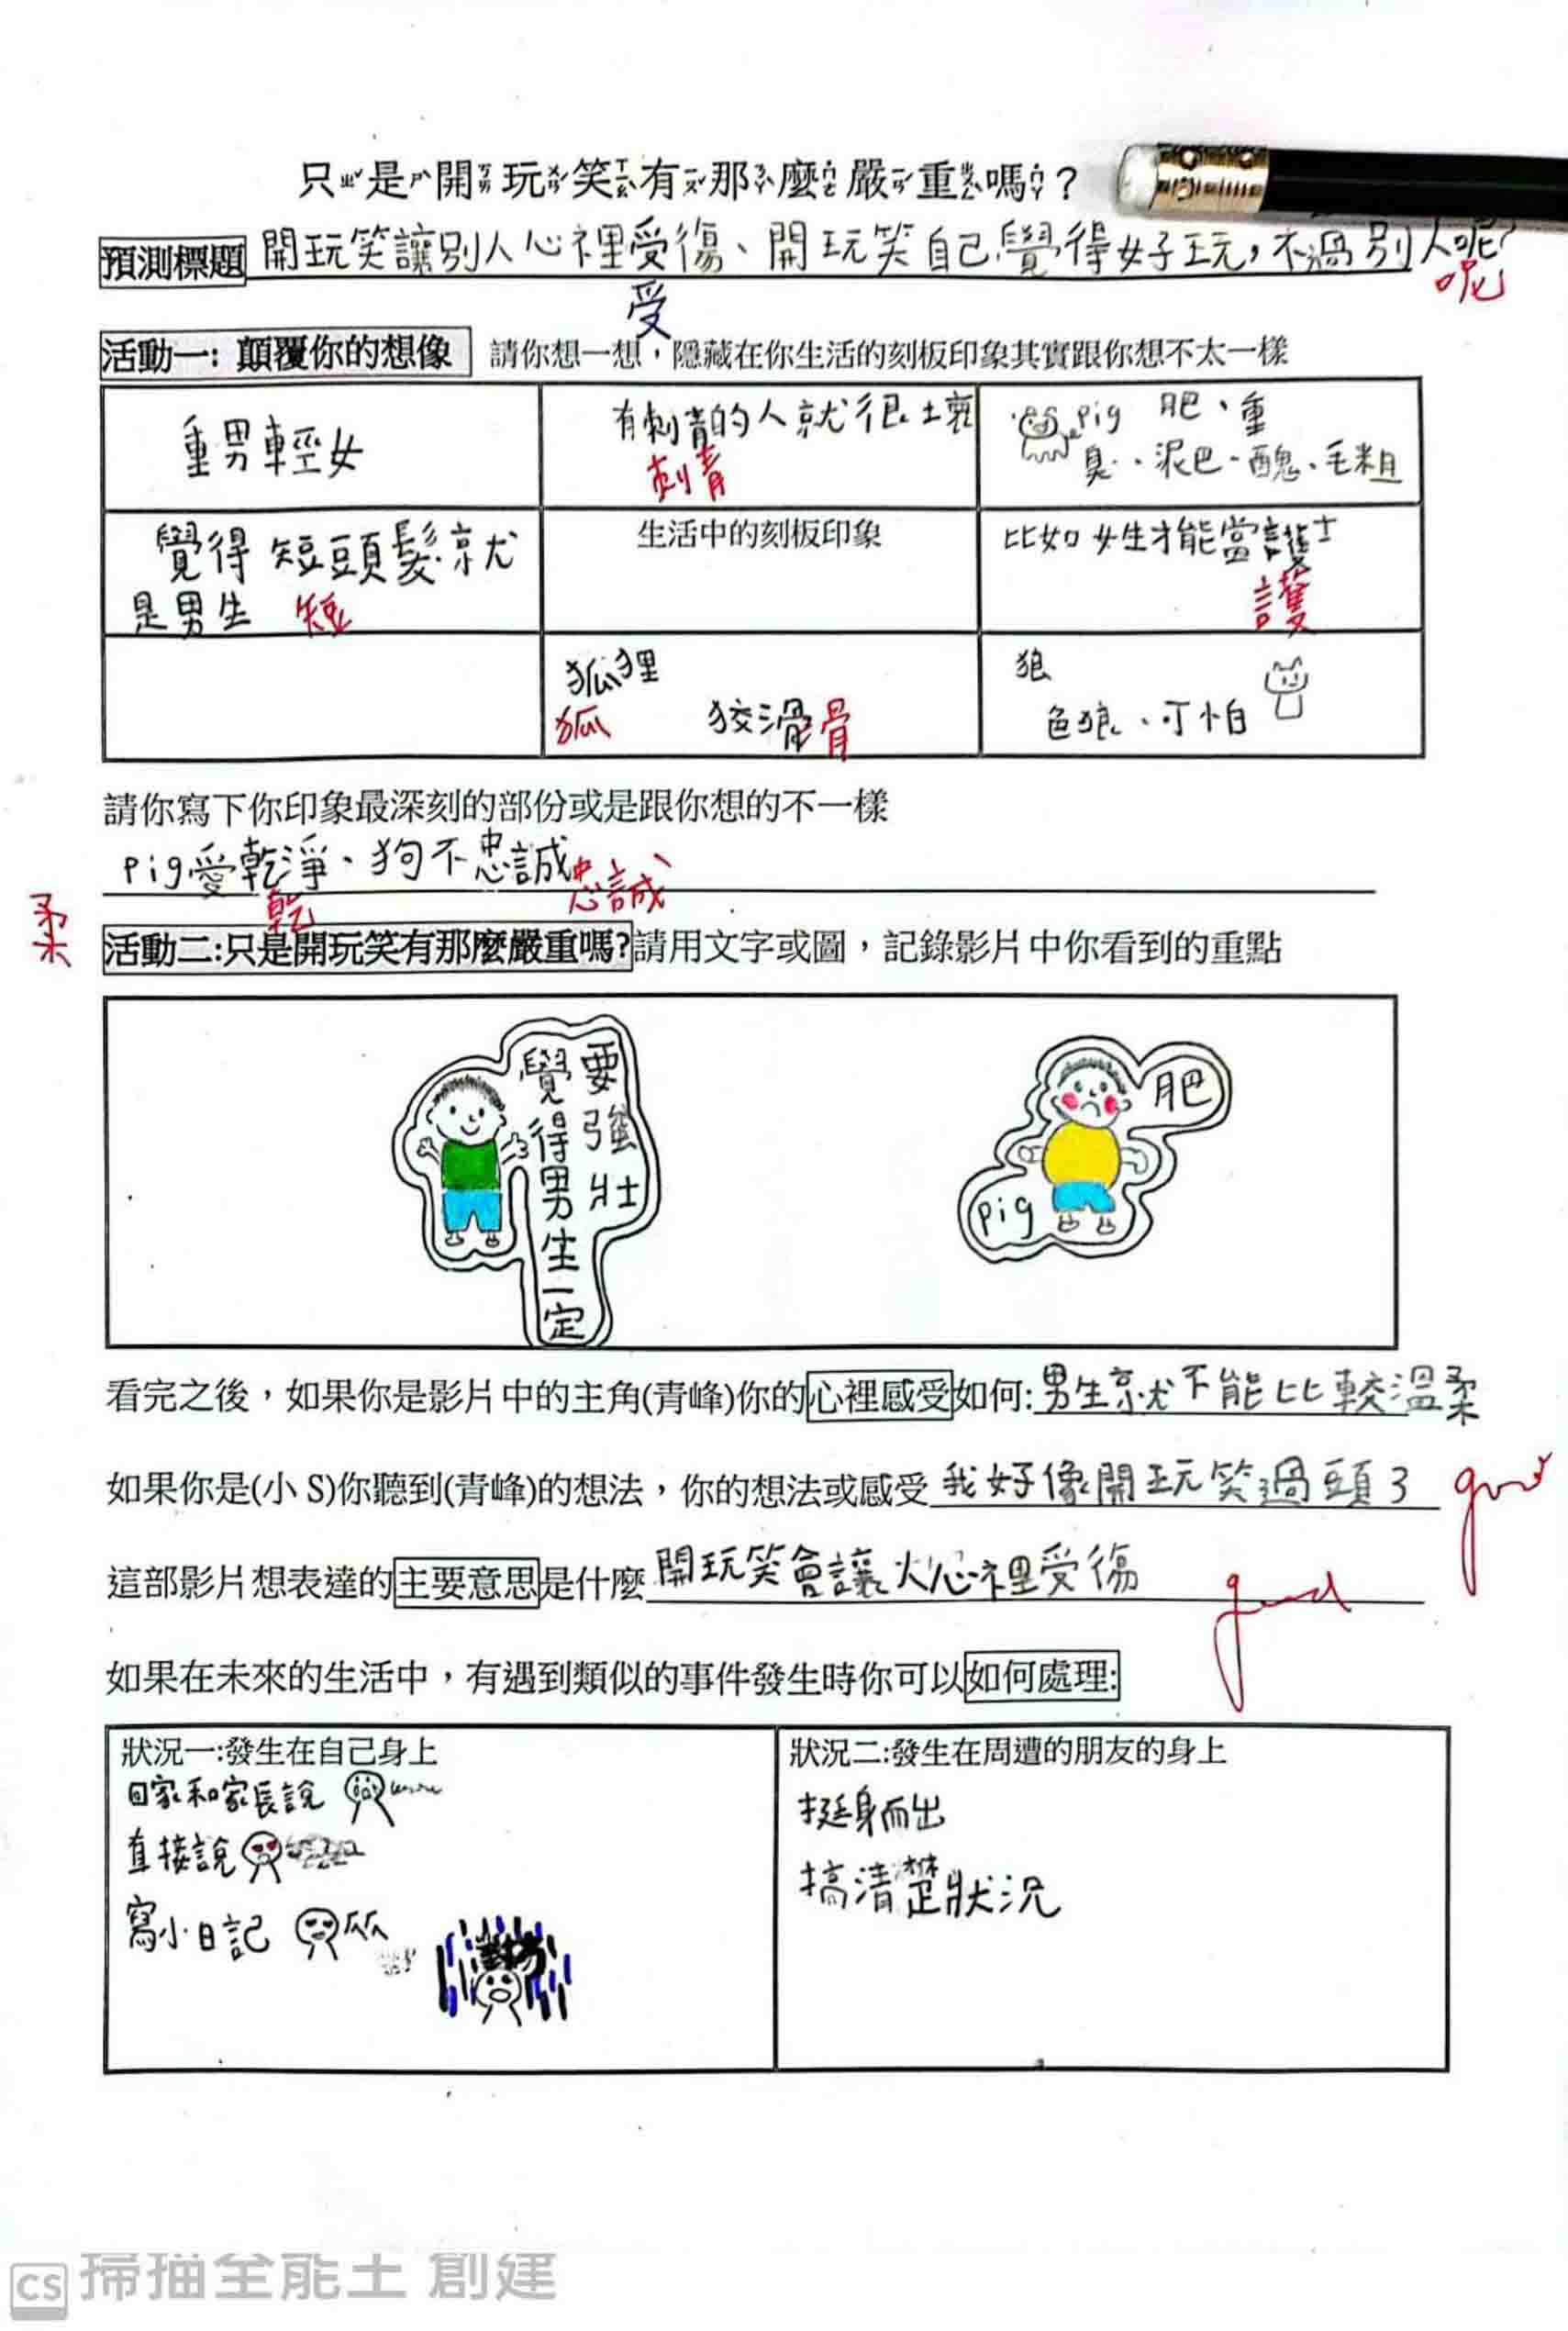 只是開玩笑有那麼嚴重嗎？
預測標題 開玩笑讓別人心裡受傷、開玩笑自己覺得好玩，不過別人呢?
受 呢
活動一：顛覆你的想像 請你想一想，隱藏在你生活的刻板印象其實跟你想不太一樣
重男輕女
有刺青的人就很壞
刺青
pig 肥、重
臭、泥巴、醜、毛粗
覺得短頭髮就
是男生 短
生活中的刻板印象
比如女生才能當護士
護
狐狸
狐 狡滑 骨
狼
色狼、可怕
請你寫下你印象最深刻的部份或是跟你想的不一樣
pig愛乾淨、狗不忠誠
乾 忠誠
柔
活動二:只是開玩笑有那麼嚴重嗎?請用文字或圖，記錄影片中你看到的重點
覺得男生一定
要強壯
肥
pig
看完之後，如果你是影片中的主角(青峰)你的心裡感受如何:男生就不能比較溫柔
如果你是(小 S)你聽到(青峰)的想法，你的想法或感受 我好像開玩笑過頭了
good
這部影片想表達的主要意思是什麼 開玩笑會讓人心裡受傷
good
如果在未來的生活中，有遇到類似的事件發生時你可以如何處理:
狀況一:發生在自己身上
回家和家長說
直接說
寫小日記
狀況二:發生在周遭的朋友的身上
挺身而出
搞清楚狀況
CS 掃描全能王 創建